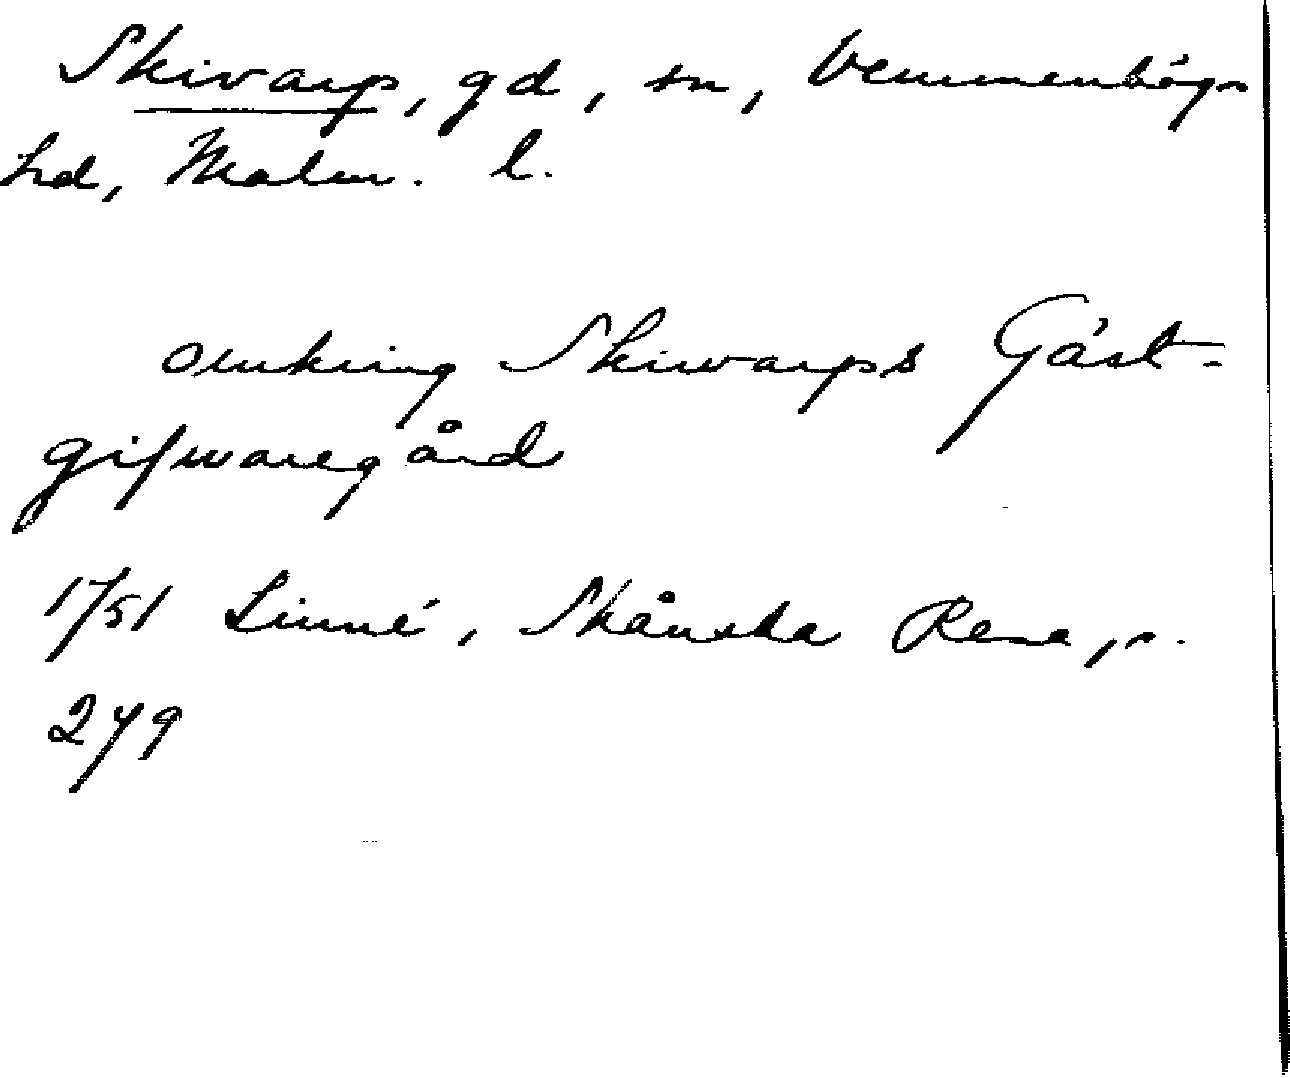 Skivarp, gd, sn, Vemmenhögs
hd, Malm. l.
omkring Skiwarps Gäst-
gifwaregård
1751 Linné, Skånska Resa, s.
279